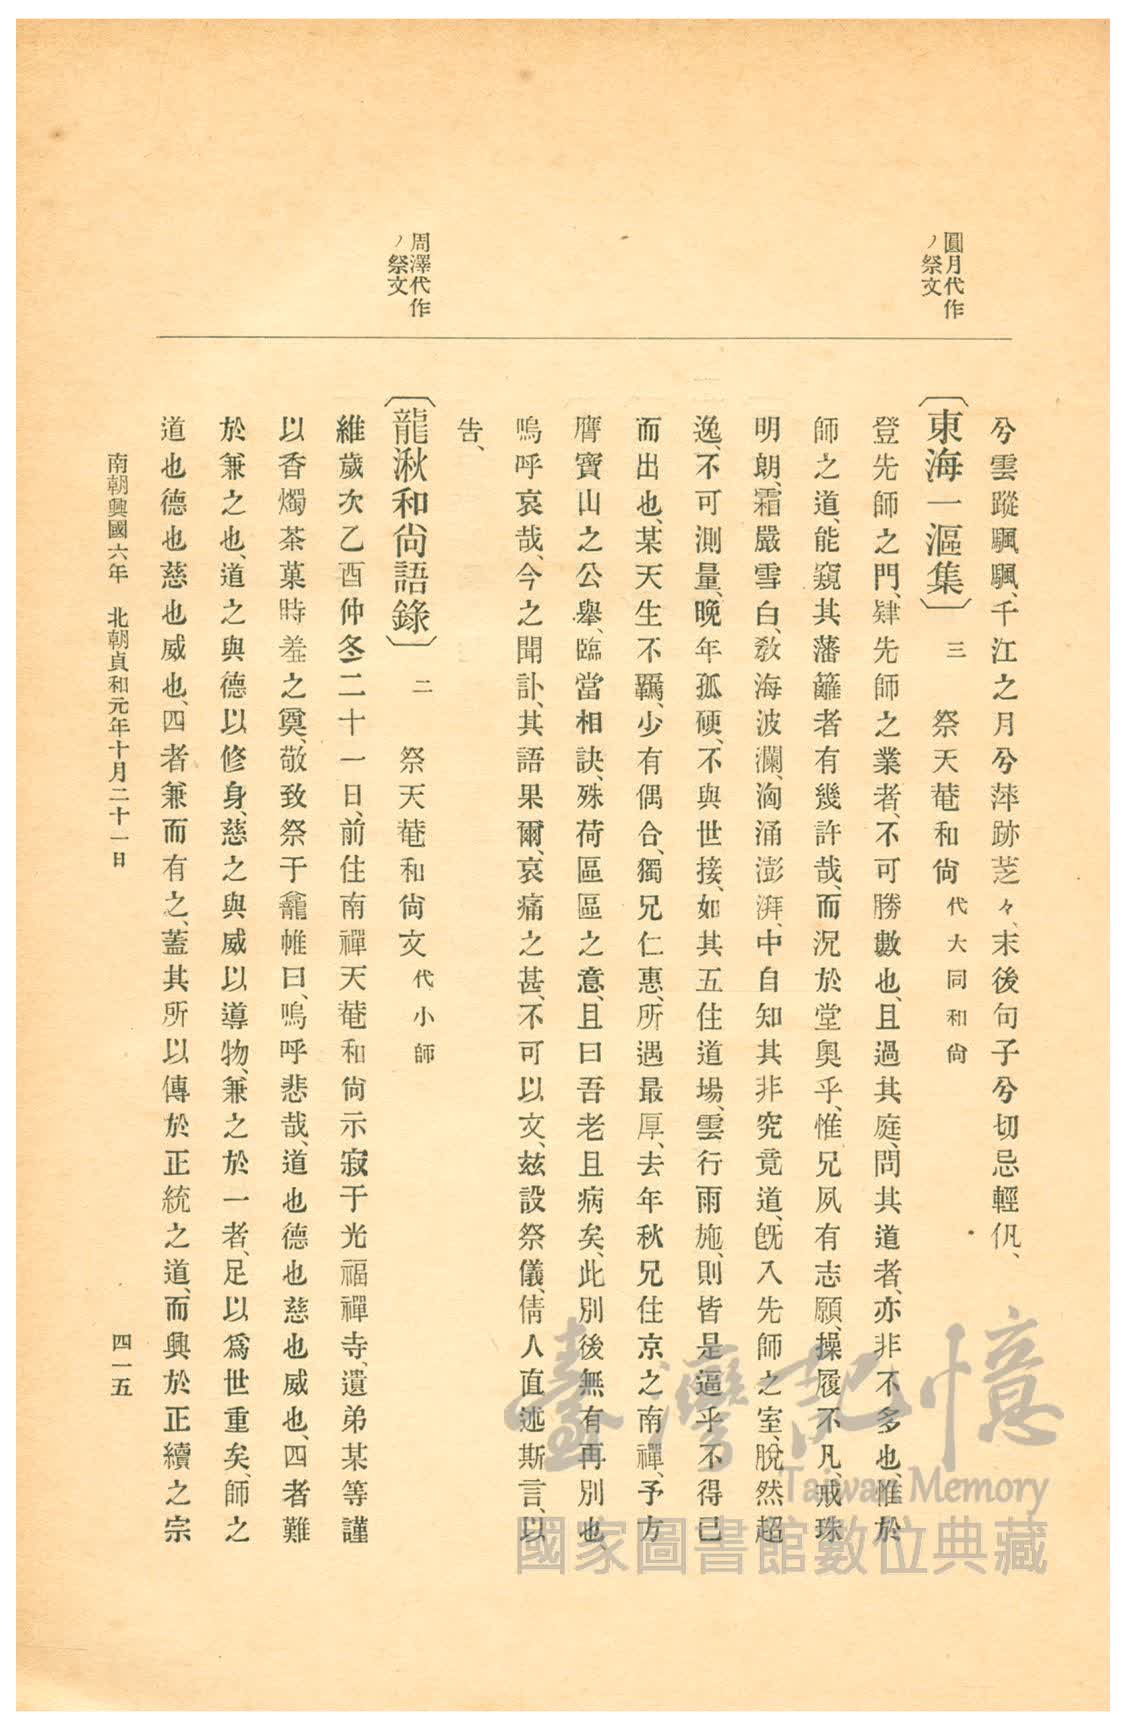 圓月代作
ノ祭文
周澤代作
ノ祭文
兮雲蹤颿颿、千江之月兮萍跡芝々、末後句子兮切忌輕伉、
〔東海一漚集〕 三 祭天菴和尙 代大同和尙
登先師之門、肄先師之業者、不可勝數也、且過其庭、問其道者、亦非不多也、惟於
師之道、能窺其藩籬者有幾許哉、而況於堂奧乎、惟兄夙有志願、操履不凡、戒珠
明朗、霜嚴雪白、敎海波瀾、洶涌澎湃、中自知其非究竟道、旣入先師之室、脫然超
逸、不可測量、晚年孤硬、不與世接、如其五住道場、雲行雨施、則皆是逼乎不得已
而出也、某天生不羈、少有偶合、獨兄仁惠、所遇最厚、去年秋兄住京之南禪、予方
膺寶山之公舉、臨當相訣、殊荷區區之意、且曰吾老且病矣、此別後無有再別也、
嗚呼哀哉、今之聞訃、其語果爾、哀痛之甚、不可以文、玆設祭儀、倩人直述斯言、以
告、
〔龍湫和尙語錄〕 二 祭天菴和尙文 代小師
維歲次乙酉仲冬二十一日、前住南禪天菴和尙示寂于光福禪寺、遺弟某等謹
以香燭茶菓時羞之奠、敬致祭于龕帷曰、嗚呼悲哉、道也德也慈也威也、四者難
於兼之也、道之與德以修身、慈之與威以導物、兼之於一者、足以爲世重矣、師之
道也德也慈也威也、四者兼而有之、蓋其所以傳於正統之道、而興於正續之宗
南朝興國六年 北朝貞和元年十月二十一日
四一五
臺灣記憶
Taiwan Memory
國家圖書館數位典藏